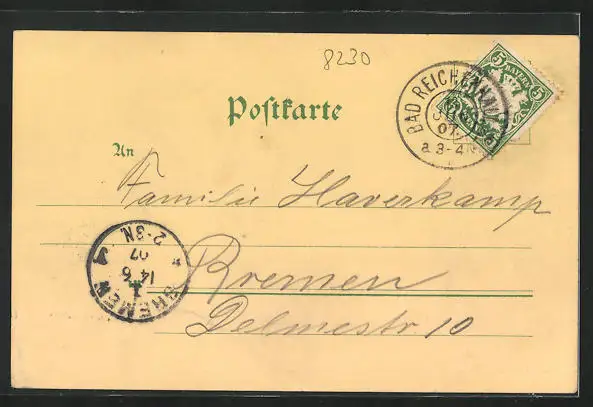 8230
Postkarte
5 BAYERN 5
BAD REICHENHALL
07
a 3-4 N
An
Familie Haverkamp
Bremen
Delmestr. 10
BREMEN
1
14 6
07
2-3N.